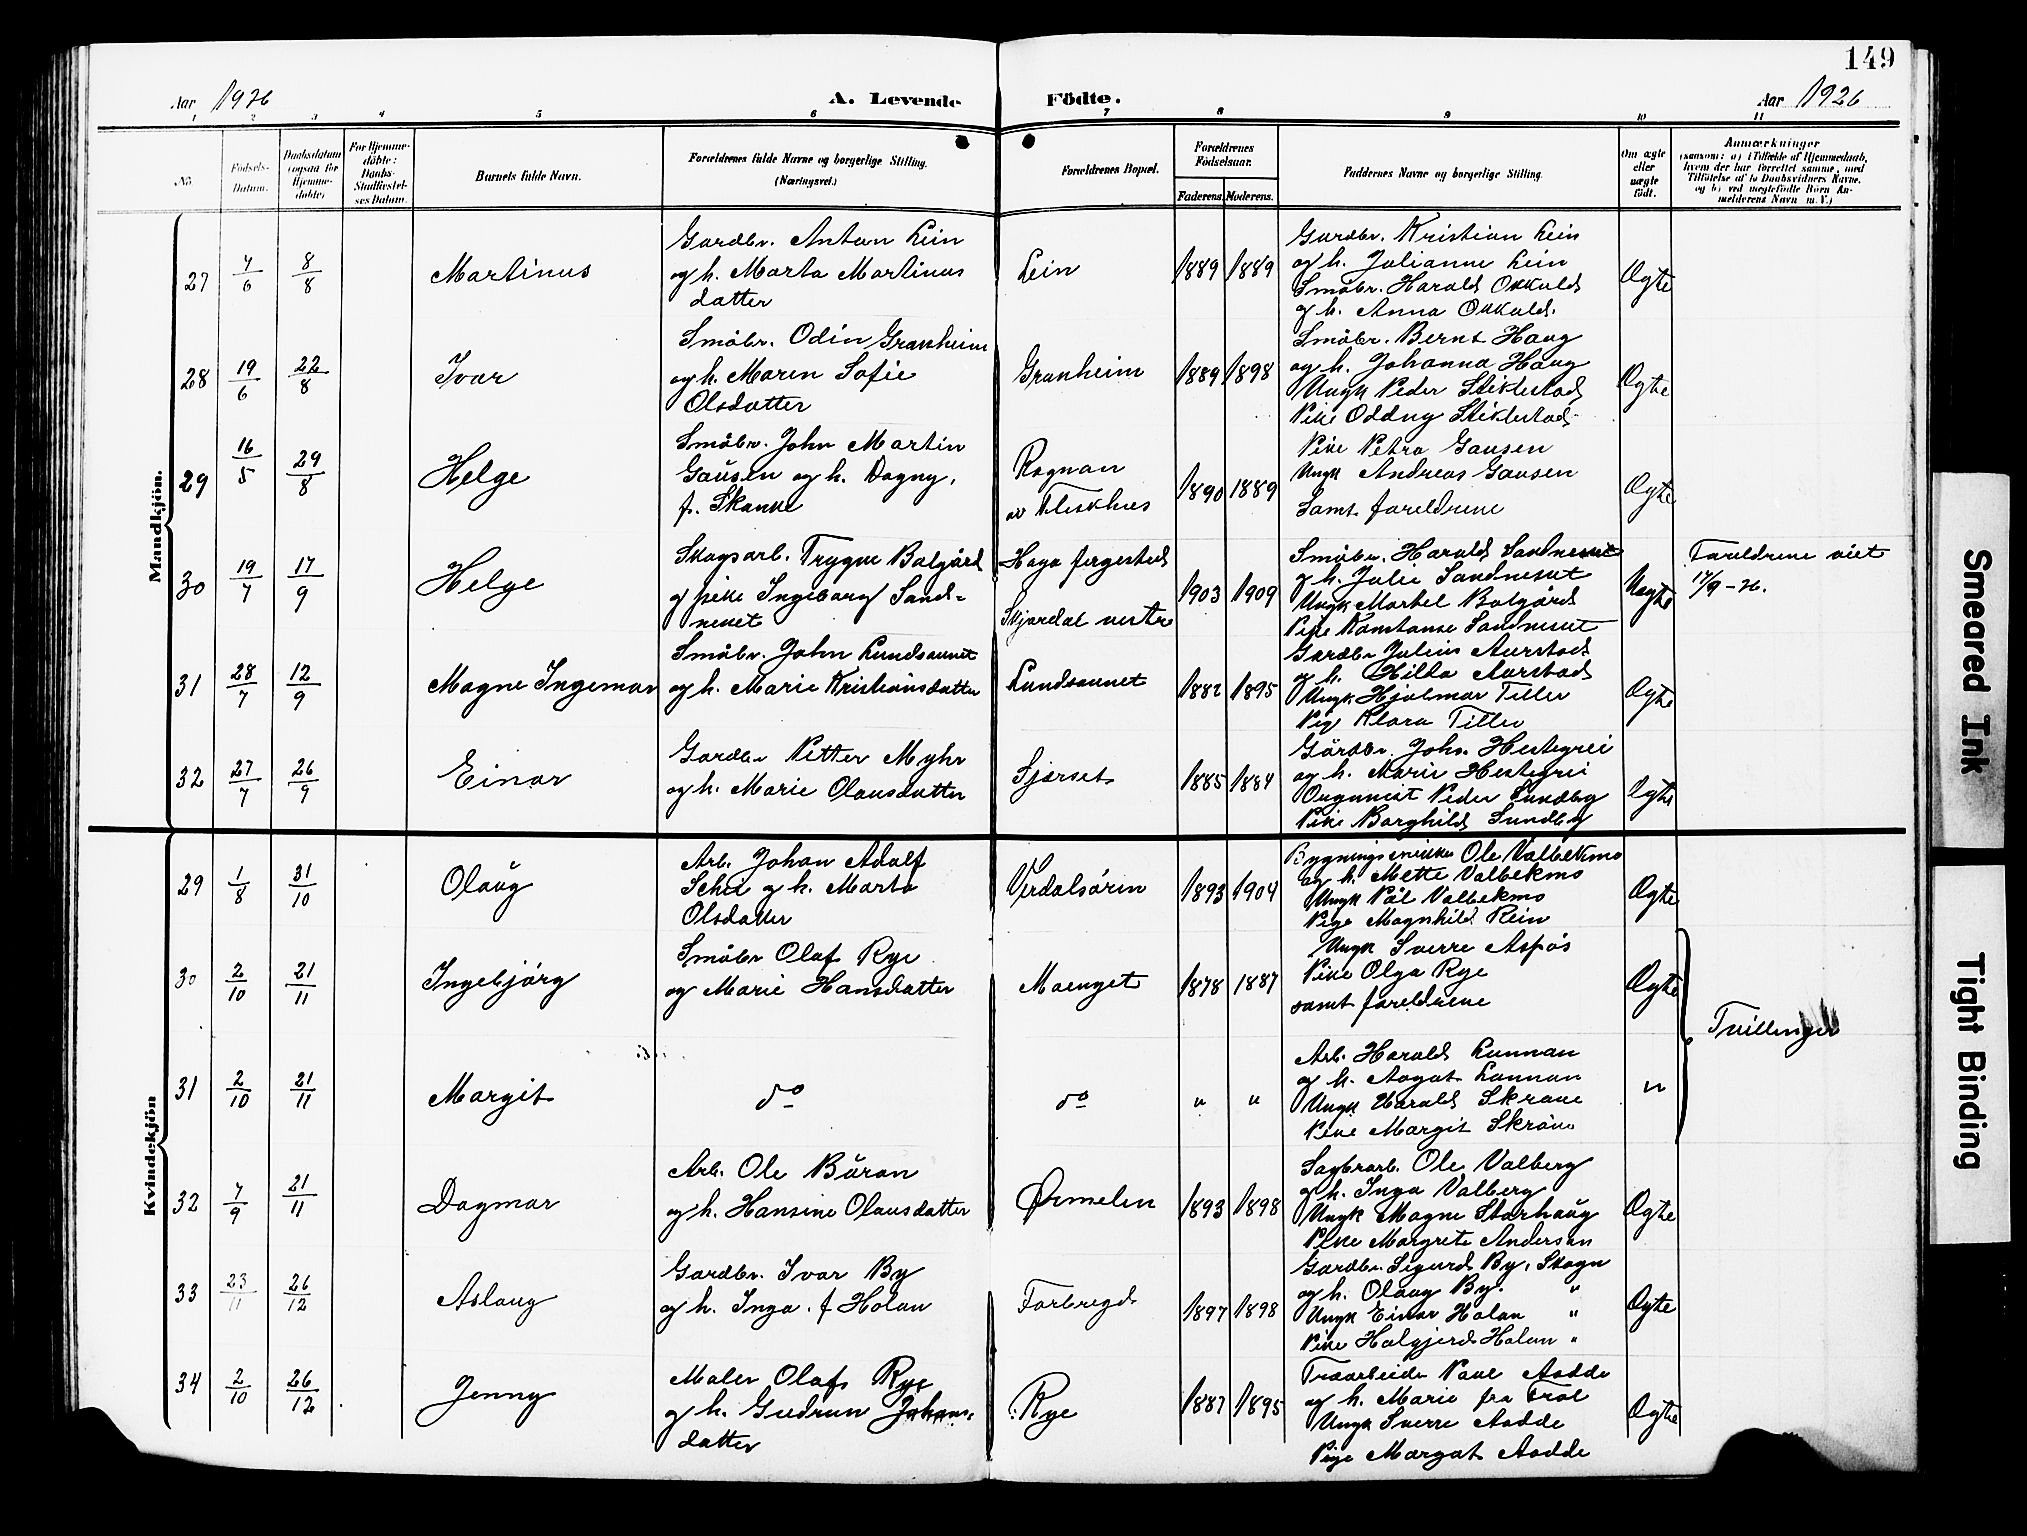 149
Aar 1926 A. Levende Födte. Aar 1926
1 2 3 4 5 6 7 8 9 10 11
No. Födsels-Datum. Daabsdatum (ogsaa for Hjemmedöbte) For Hjemmedöbte: Daabs-Stadfæstelses Datum. Barnets fulde Navn. Forældrenes fulde Navne og borgerlige Stilling. (Næringsvei.) Forældrenes Bopæl. Forældrenes Födselsaar. Faderens. Moderens. Faddernes Navne og borgerlige Stilling. Om ægte eller uægte födt. Anmærkninger (saasom: a) i Tilfælde af Hjemmedaab, hvem der har forrettet samme, med Tilföielse af to Daabsvidners Navne, og b) ved uegtefödte Börn Anmelderens Navn m. V.)
Mandkjön.
27 7/6 8/8 Martinus
Gardbr. Anton Lein
og h. Marta Martinus
datter
Lein 1889 1889
Gardbr. Kristian Lein
og h. Julianne Lein
Småbr. Harald Okkuld
og h. Anna Okkuld.
Ægte
28 19/6 22/8 Ivar
Småbr. Odin Granheim
og h. Maren Sofie
Olsdatter
Granheim 1889 1898
Småbr. Bernt Haug
og h. Johanna Haug
Ungk Peder Stiklestad
Pike Oddny Stiklestad
Ægte
29 16/5 29/8 Helge
Småbr. John Martin
Gausen og h. Dagny,
f. Skanke
Rognan
av Fleskhus
1890 1889
Pike Petra Gausen
Ungk Andreas Gausen
Samt foreldrene
Ægte
30 19/7 17/9 Helge
Skogsarb. Trygve Balgård
og pike Ingeborg Sand-
neset
Haga fergestad
Skjørdal vestre
1903 1909
Småbr. Harald Sandneset
og h. Julie Sandneset
Ungk Martel Balgård
Pike Konstanse Sandneset
Uægte
Foreldrene viet
17/9-26.
31 28/7 12/9 Magne Ingemar
Småbr. John Lundsaunet
og h. Marie Kristiansdatter
Lundsaunet 1882 1895
Gardbr Julius Aurstad
og h. Hilda Aurstad
Ungk Hjalmar Tiller
Pige Klara Tiller
Ægte
32 27/7 26/9 Einar
Gardbr Petter Myhr
og h. Marie Olausdatter
Fjærset 1885 1884
Gårdbr. Johs. Hestegrei
og h. Marie Hestegrei
Organist Peder Sundby
Pike Borghild Sundby
Ægte
Kvindekjön
29 1/8 31/10 Olaug
Arb. Johan Adolf
og h. Marta
Olsdatter
Verdalsøren 1893 1904
Ole Valbekmo
og h. Mette Valbekmo
Ungk Pål Valbekmo
Pige Magnhild Rein
Ægte
30 2/10 21/11 Ingebjörg
Småbr Olaf Rye
og Marie Hansdatter
Maenget 1878 1887
Ungk Sverre Aspås
Pike Olga Rye
samt foreldrene
Ægte
Tvillinger
31 2/10 21/11 Margit
do do " "
Arb. Harald Lunnan
og h. Aagot Lunnan
Ungk Harald Skrove
Pike Margit Skrove
"
32 7/9 21/11 Dagmar
Arb. Ole Båran
og h. Hansine Olausdatter
Ørmelen 1893 1898
Sagbrarb. Ole Valberg
og h. Inga Valberg
Ungk Magne Storhaug
Pike Margrete Anderson
Ægte
33 23/11 26/12 Aslaug
Gardbr. Ivar By
og h. Inga. f Holan
Forbregd 1897 1898
Gardbr. Sigurd By, Skogn
og h. Olaug By. "
Ungk Einar Holan "
Pike Halgjerd Holan "
Ægte
34 2/10 26/12 Jenny
Maler Olaf Rye
og h. Gudrun Johans-
datter
Rye 1887 1895
Traarbeider Paul Aadde
og h. Marie fra Frol
Ungk Sverre Aadde
Pige Margot Aadde
Ægte
Smeared Ink
Tight Binding